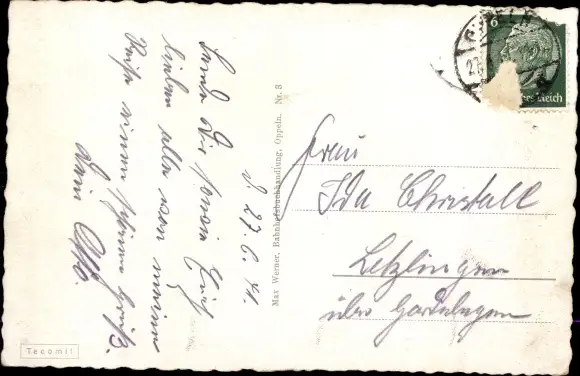 d. 27. 6. 41.
Sende Dir sowie Euch
lieben alle von meiner
Reise einen schönen Gruß.
Dein Otto.
Max Werner, Bahnhofsbuchhandlung, Oppeln. Nr. 8
Tecomit
OPPELN
27.
6
Deutsches Reich
Frau
Ida Christall
Letzlingen
über Gardelegen